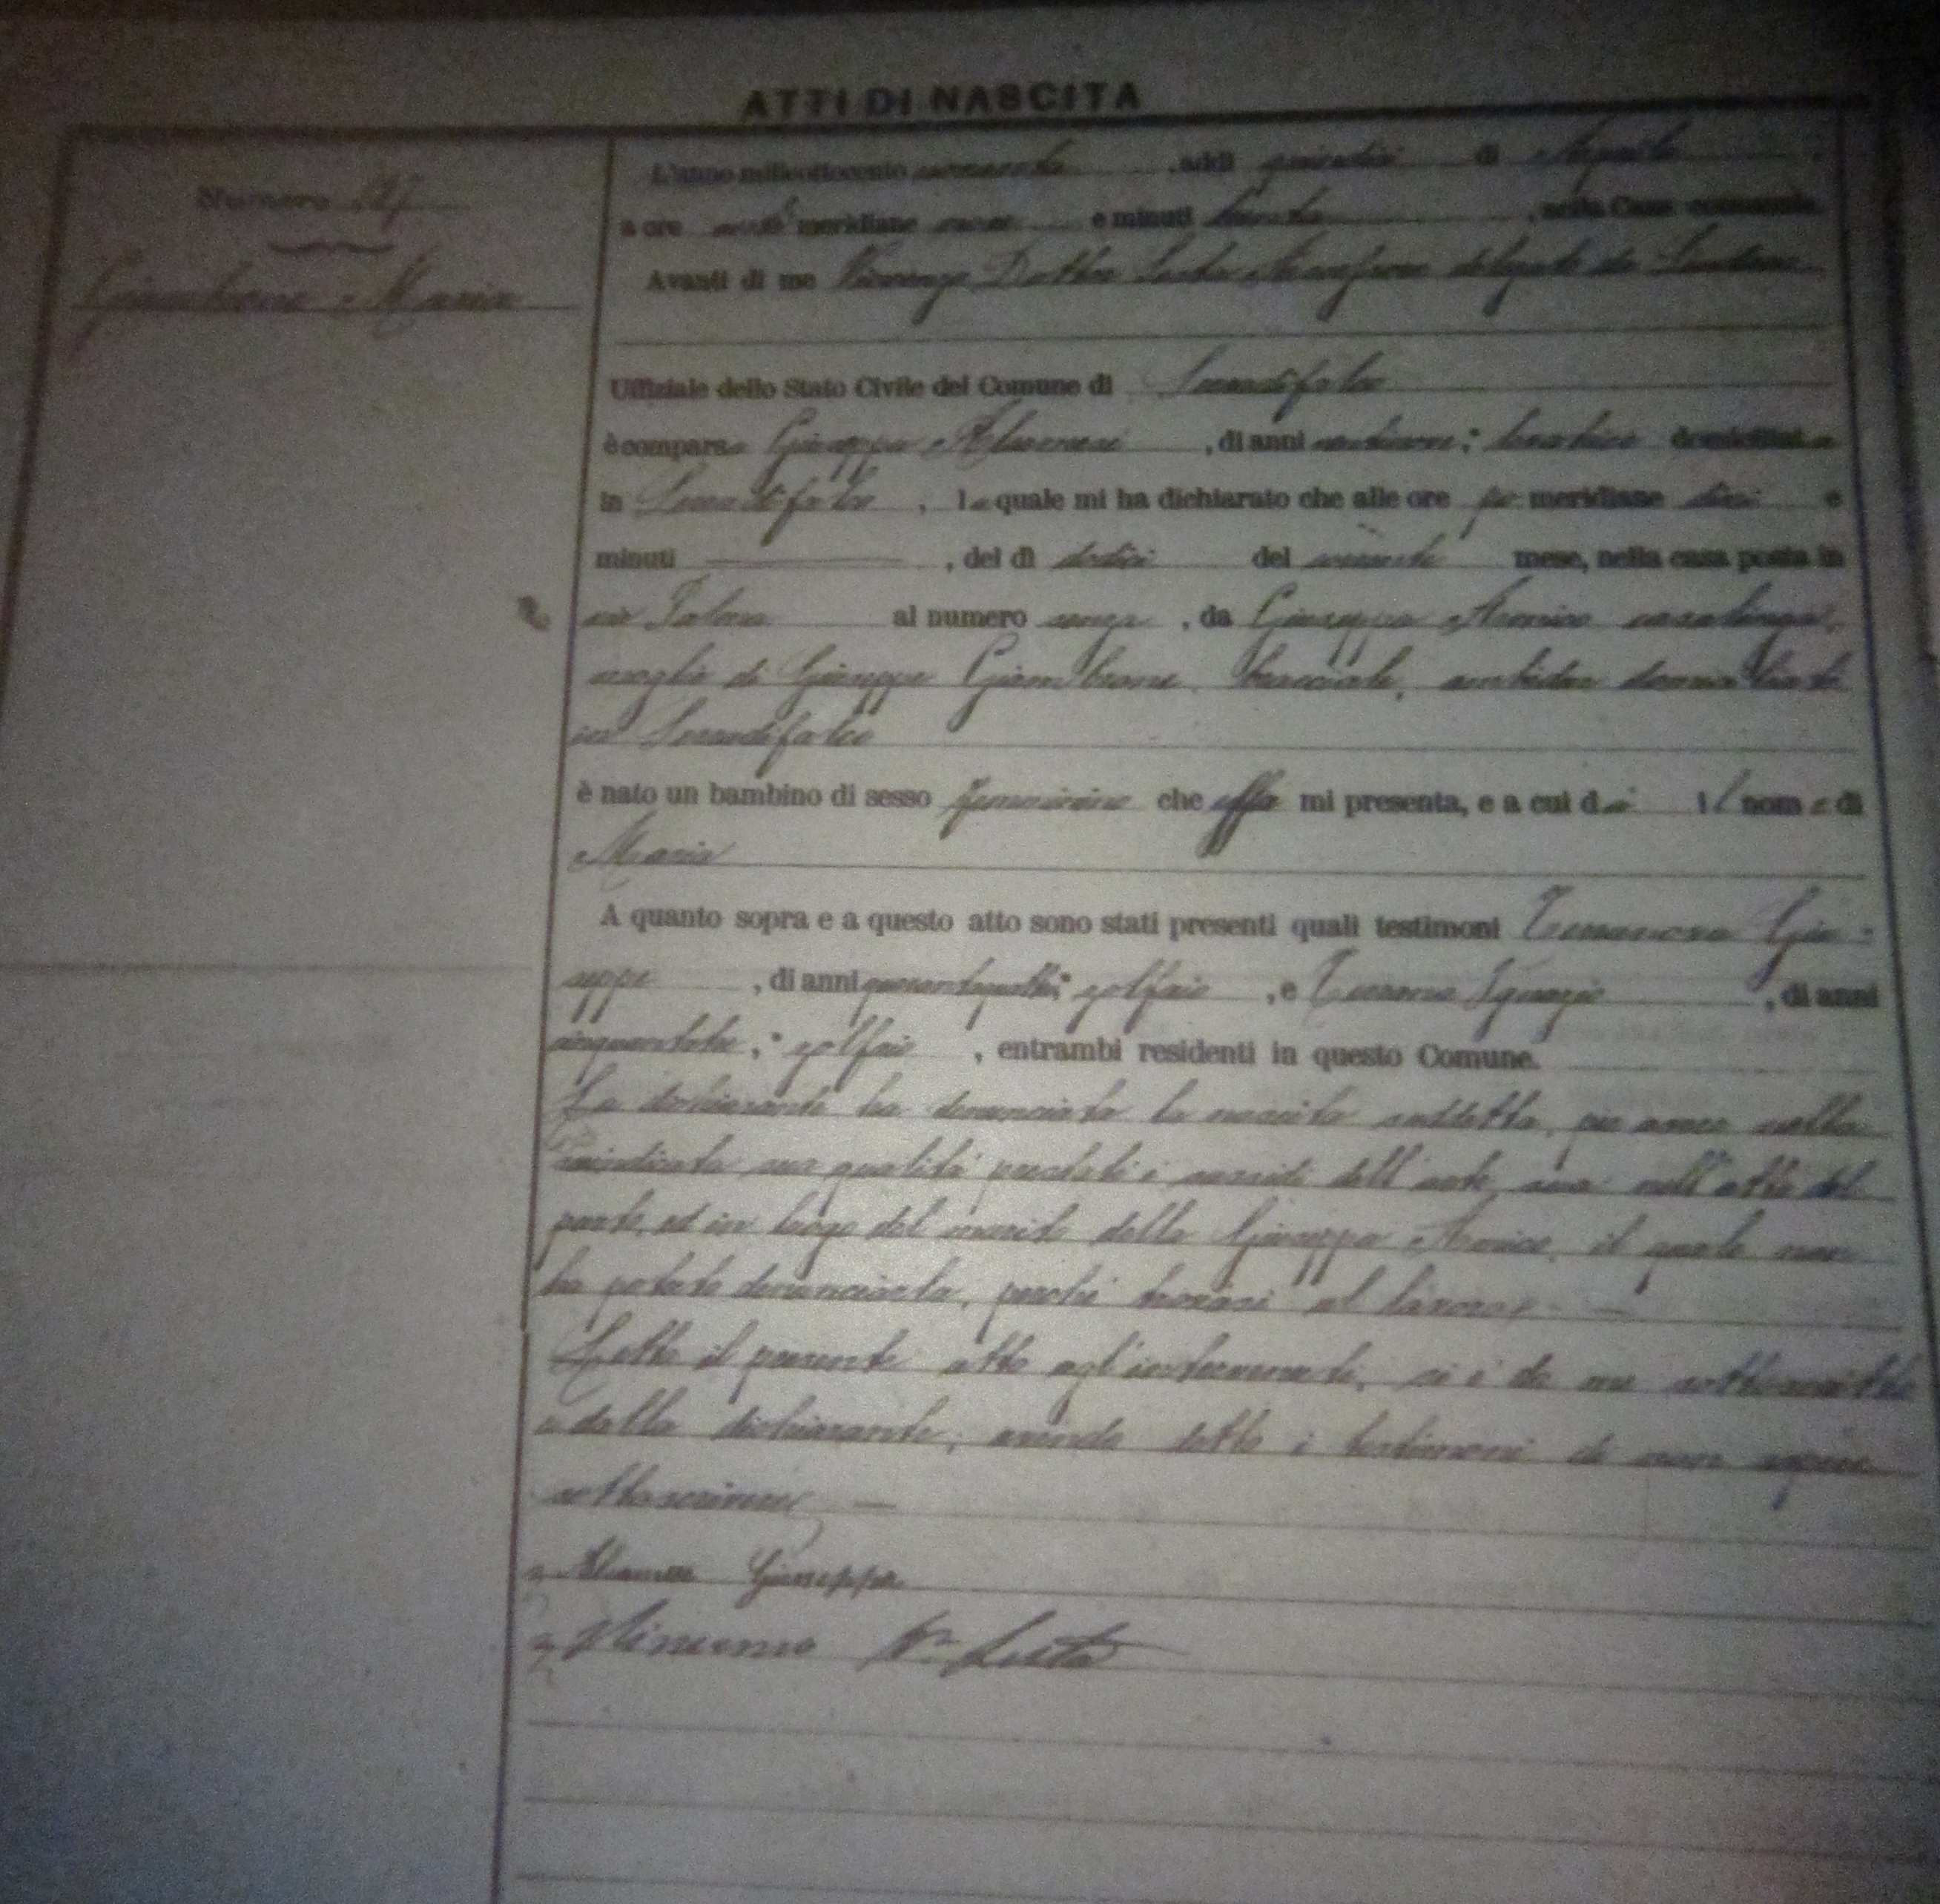 ATTI DI NASCITA
Numero
Giambrone Maria
L'anno milleottocento novanta, addì quindici di Aprile
a ore anti meridiane nove e minuti trenta, nella Casa comunale.
Avanti di me Vincenzo Dottor Lusta delegato dal Sindaco
Uffiziale dello Stato Civile del Comune di Serradifalco
è comparsa Giuseppa, di anni; levatrice domiciliata
in Serradifalco, la quale mi ha dichiarato che alle ore po meridiane dieci e
minuti, del dì dodici del corrente mese, nella casa posta in
via al numero senza, da Giuseppa Amico casalinga,
moglie di Giuseppe Giambrone, bracciale, ambidue domiciliati
in Serradifalco
è nato un bambino di sesso femminino che essa mi presenta, e a cui dà il nome di
Maria
A quanto sopra e a questo atto sono stati presenti quali testimoni Terranova Giu-
seppe, di anni quarantaquattro; zolfaio, e Ignazio, di anni
cinquantatre; zolfaio, entrambi residenti in questo Comune.
La dichiarante ha denunciato la nascita suddetta, per avere nella
indicata sua qualità prestati i sussidi dell'arte sua nell'atto del
parto, ed in luogo del marito della Giuseppa Amico, il quale non
ha potuto denunciarla, perchè trovasi al lavoro.
Letto il presente atto agl'intervenuti, si è da me sottoscritto
e dalla dichiarante; avendo detto i testimoni di non sapere
sottoscrivere
Giuseppa
Vincenzo Dr Lusta